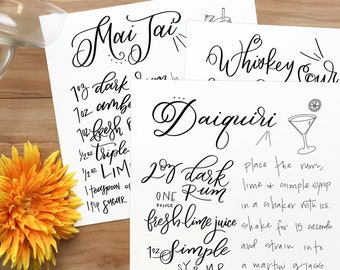 Mai Tai
1oz dark
1oz amber
1oz fresh
1/2oz triple
1/2oz LIME
1 teaspoon
1 tsp SUGAR
Whiskey Sour
Daiquiri
2oz dark Rum
ONE OUNCE
fresh lime juice
1oz Simple
SYRUP
place the rum,
lime & simple syrup
in a shaker with ice.
shake for 15 seconds
and strain into
a martini glass